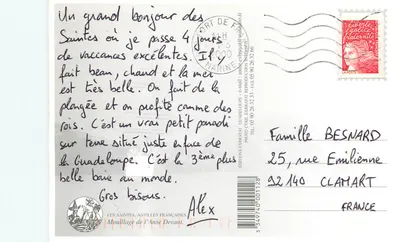 Un grand bonjour des
Saintes où je passe 4 jours
de vaccances excélentes. Il y
fait beau, chaud et la mer
est très belle. On fait de la
plongée et on profite comme des
rois. C'est un vrai petit paradi
sur terre situé juste en face de
la Guadeloupe. C'est la 3ème plus
belle baie au monde.
Gros bisous.
Alex
Famille BESNARD
25, rue Emilienne
92140 CLAMART
FRANCE
LES SAINTES - ANTILLES FRANÇAISES
Mouillage de l'Anse Devant.